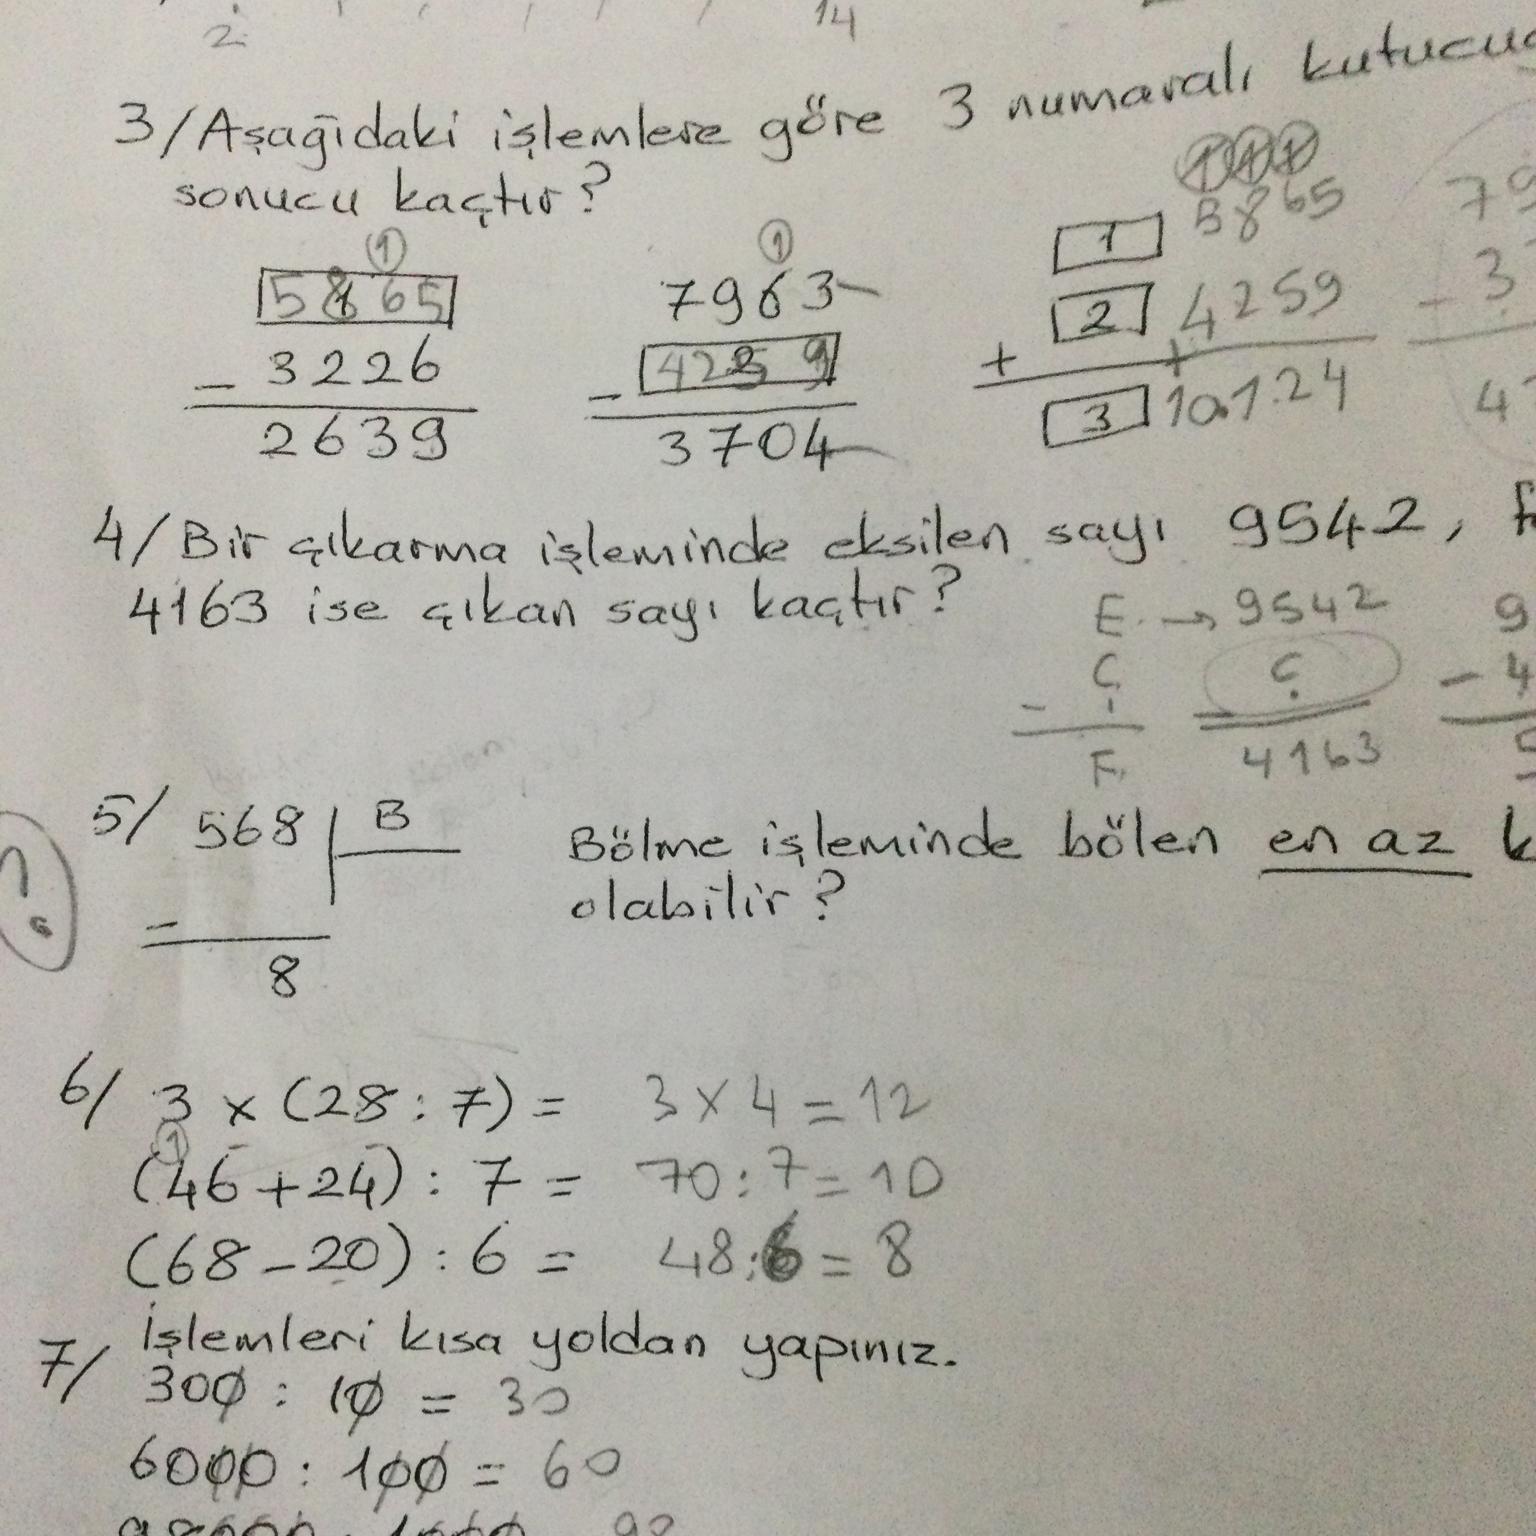 2 14
3/Aşağıdaki işlemlere göre 3 numaralı
sonucu kaçtır?
1 1 1 1 1
5865 7963 1 5865 79
- 3226 - 4259 + 2 4259 - 3
2639 3704 3 10.124 4
4/Bir çıkarma işleminde eksilen sayı 9542,
4163 ise çıkan sayı kaçtır?
E. → 9542 9
- Ç. Ç - 4
F. 4163 5
5/ 568 B Bölme işleminde bölen en az
olabilir?
- 8
?
6/ 3 x (28 : 7) = 3 x 4 = 12
1
(46 + 24) : 7 = 70 : 7 = 10
(68 - 20) : 6 = 48 : 6 = 8
7/ İşlemleri kısa yoldan yapınız.
300 : 10 = 30
6000 : 100 = 60
98000 : 1000 98